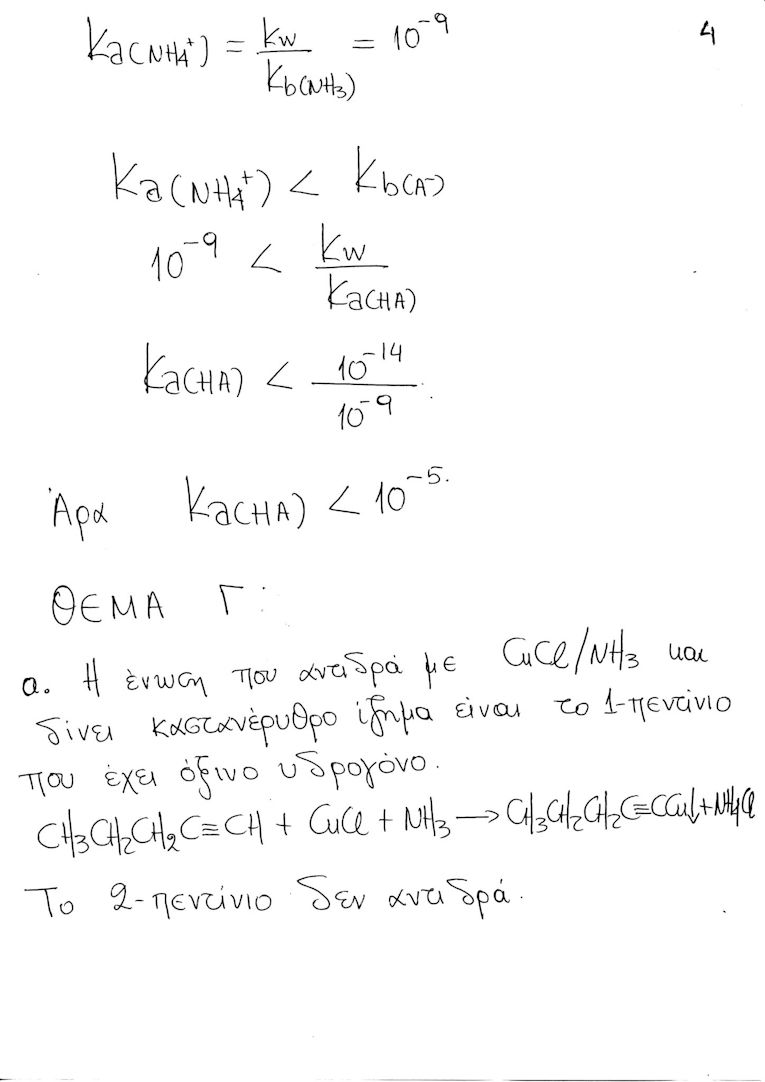 4
Ka(NH₄⁺) = kw / kb(NH₃) = 10⁻⁹
Ka(NH₄⁺) < kb(A⁻)
10⁻⁹ < kw / Ka(HA)
Ka(HA) < 10⁻¹⁴ / 10⁻⁹
Άρα Ka(HA) < 10⁻⁵.
ΘΕΜΑ Γ:
α. Η ένωση που αντιδρά με CuCl/NH₃ και
δίνει καστανέρυθρο ίζημα είναι το 1-πεντίνιο
που έχει όξινο υδρογόνο.
CH₃CH₂CH₂C≡CH + CuCl + NH₃ → CH₃CH₂CH₂C≡CCu↓ + NH₄Cl
Το 2-πεντίνιο δεν αντιδρά.